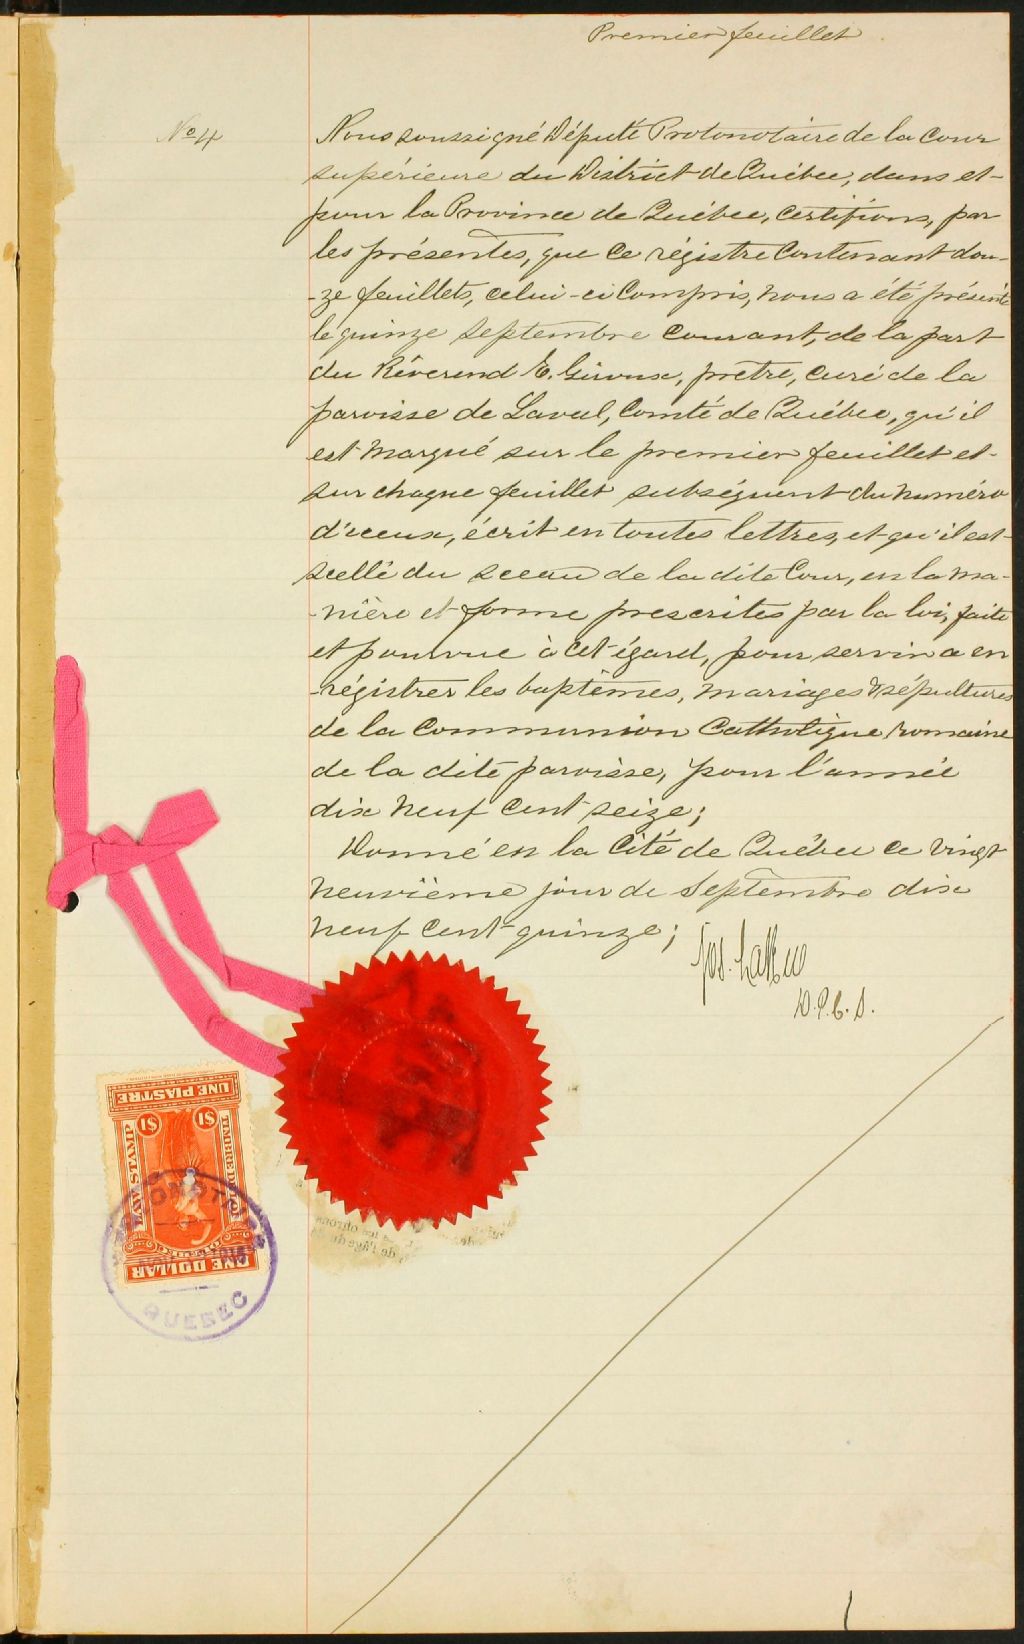 Premier feuillet
No 4
Nous soussigné Député Protonotaire de la Cour
supérieure du District de Québec, dans et
pour la Province de Québec, Certifions, par
les présentes, que ce régistre Contenant dou-
-ze feuillets, celui-ci Compris, nous a été présenté
le quinze septembre courant, de la part
du Révérend E. Giroux, prêtre, curé de la
paroisse de Laval, Comté de Québec, qu'il
est marqué sur le premier feuillet et
sur chaque feuillet subséquent du numéro
d'iceux, écrit en toutes lettres, et qu'il est
scellé du sceau de la dite Cour, en la ma-
-nière et forme prescrites par la loi, faite
et pourvue à cet égard, pour servir a en
-régistrer les baptêmes, mariages & sépultures
de la Communion Catholique romaine
de la dite paroisse, pour l'année
dix neuf cent seize;
Donné en la Cité de Québec ce vingt
neuvième jour de Septembre dix
neuf cent quinze;
Jos.
D.P.C.S.
UNE PIASTRE
$1 $1
LAW STAMP
TIMBRE DE
QUEBEC
ONE DOLLAR
QUEBEC
de l'âge du